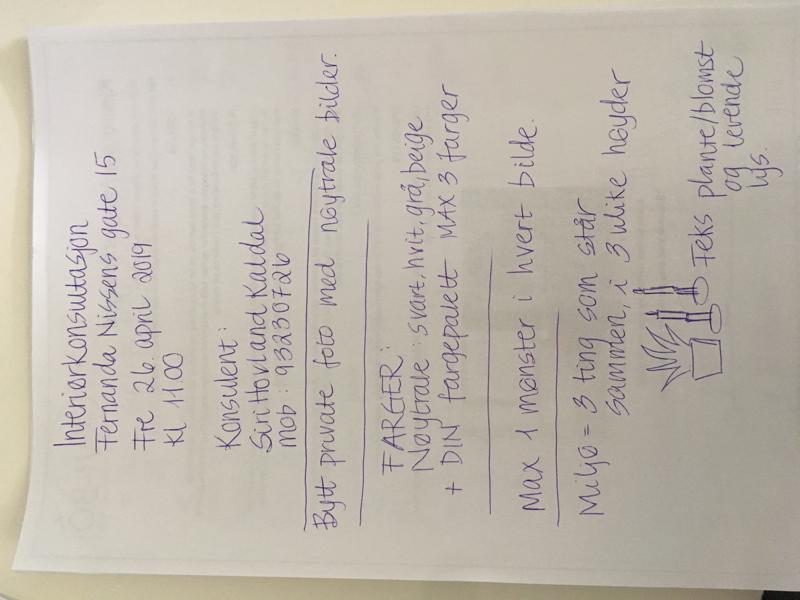 Interiørkonsultasjon
Fernanda Nissens gate 15
Fre 26. april 2019
Kl 11 00
Konsulent:
Siri Hovland Kaldal
Mob: 93230726
Bytt private foto med nøytrale bilder.
FARGER:
Nøytrale: svart, hvit, grå, beige
+ DIN fargepalett MAX 3 farger
Max 1 mønster i hvert bilde.
Miljø = 3 ting som står
sammen, i 3 ulike høyder
Feks plante/blomst
og levende
lys.